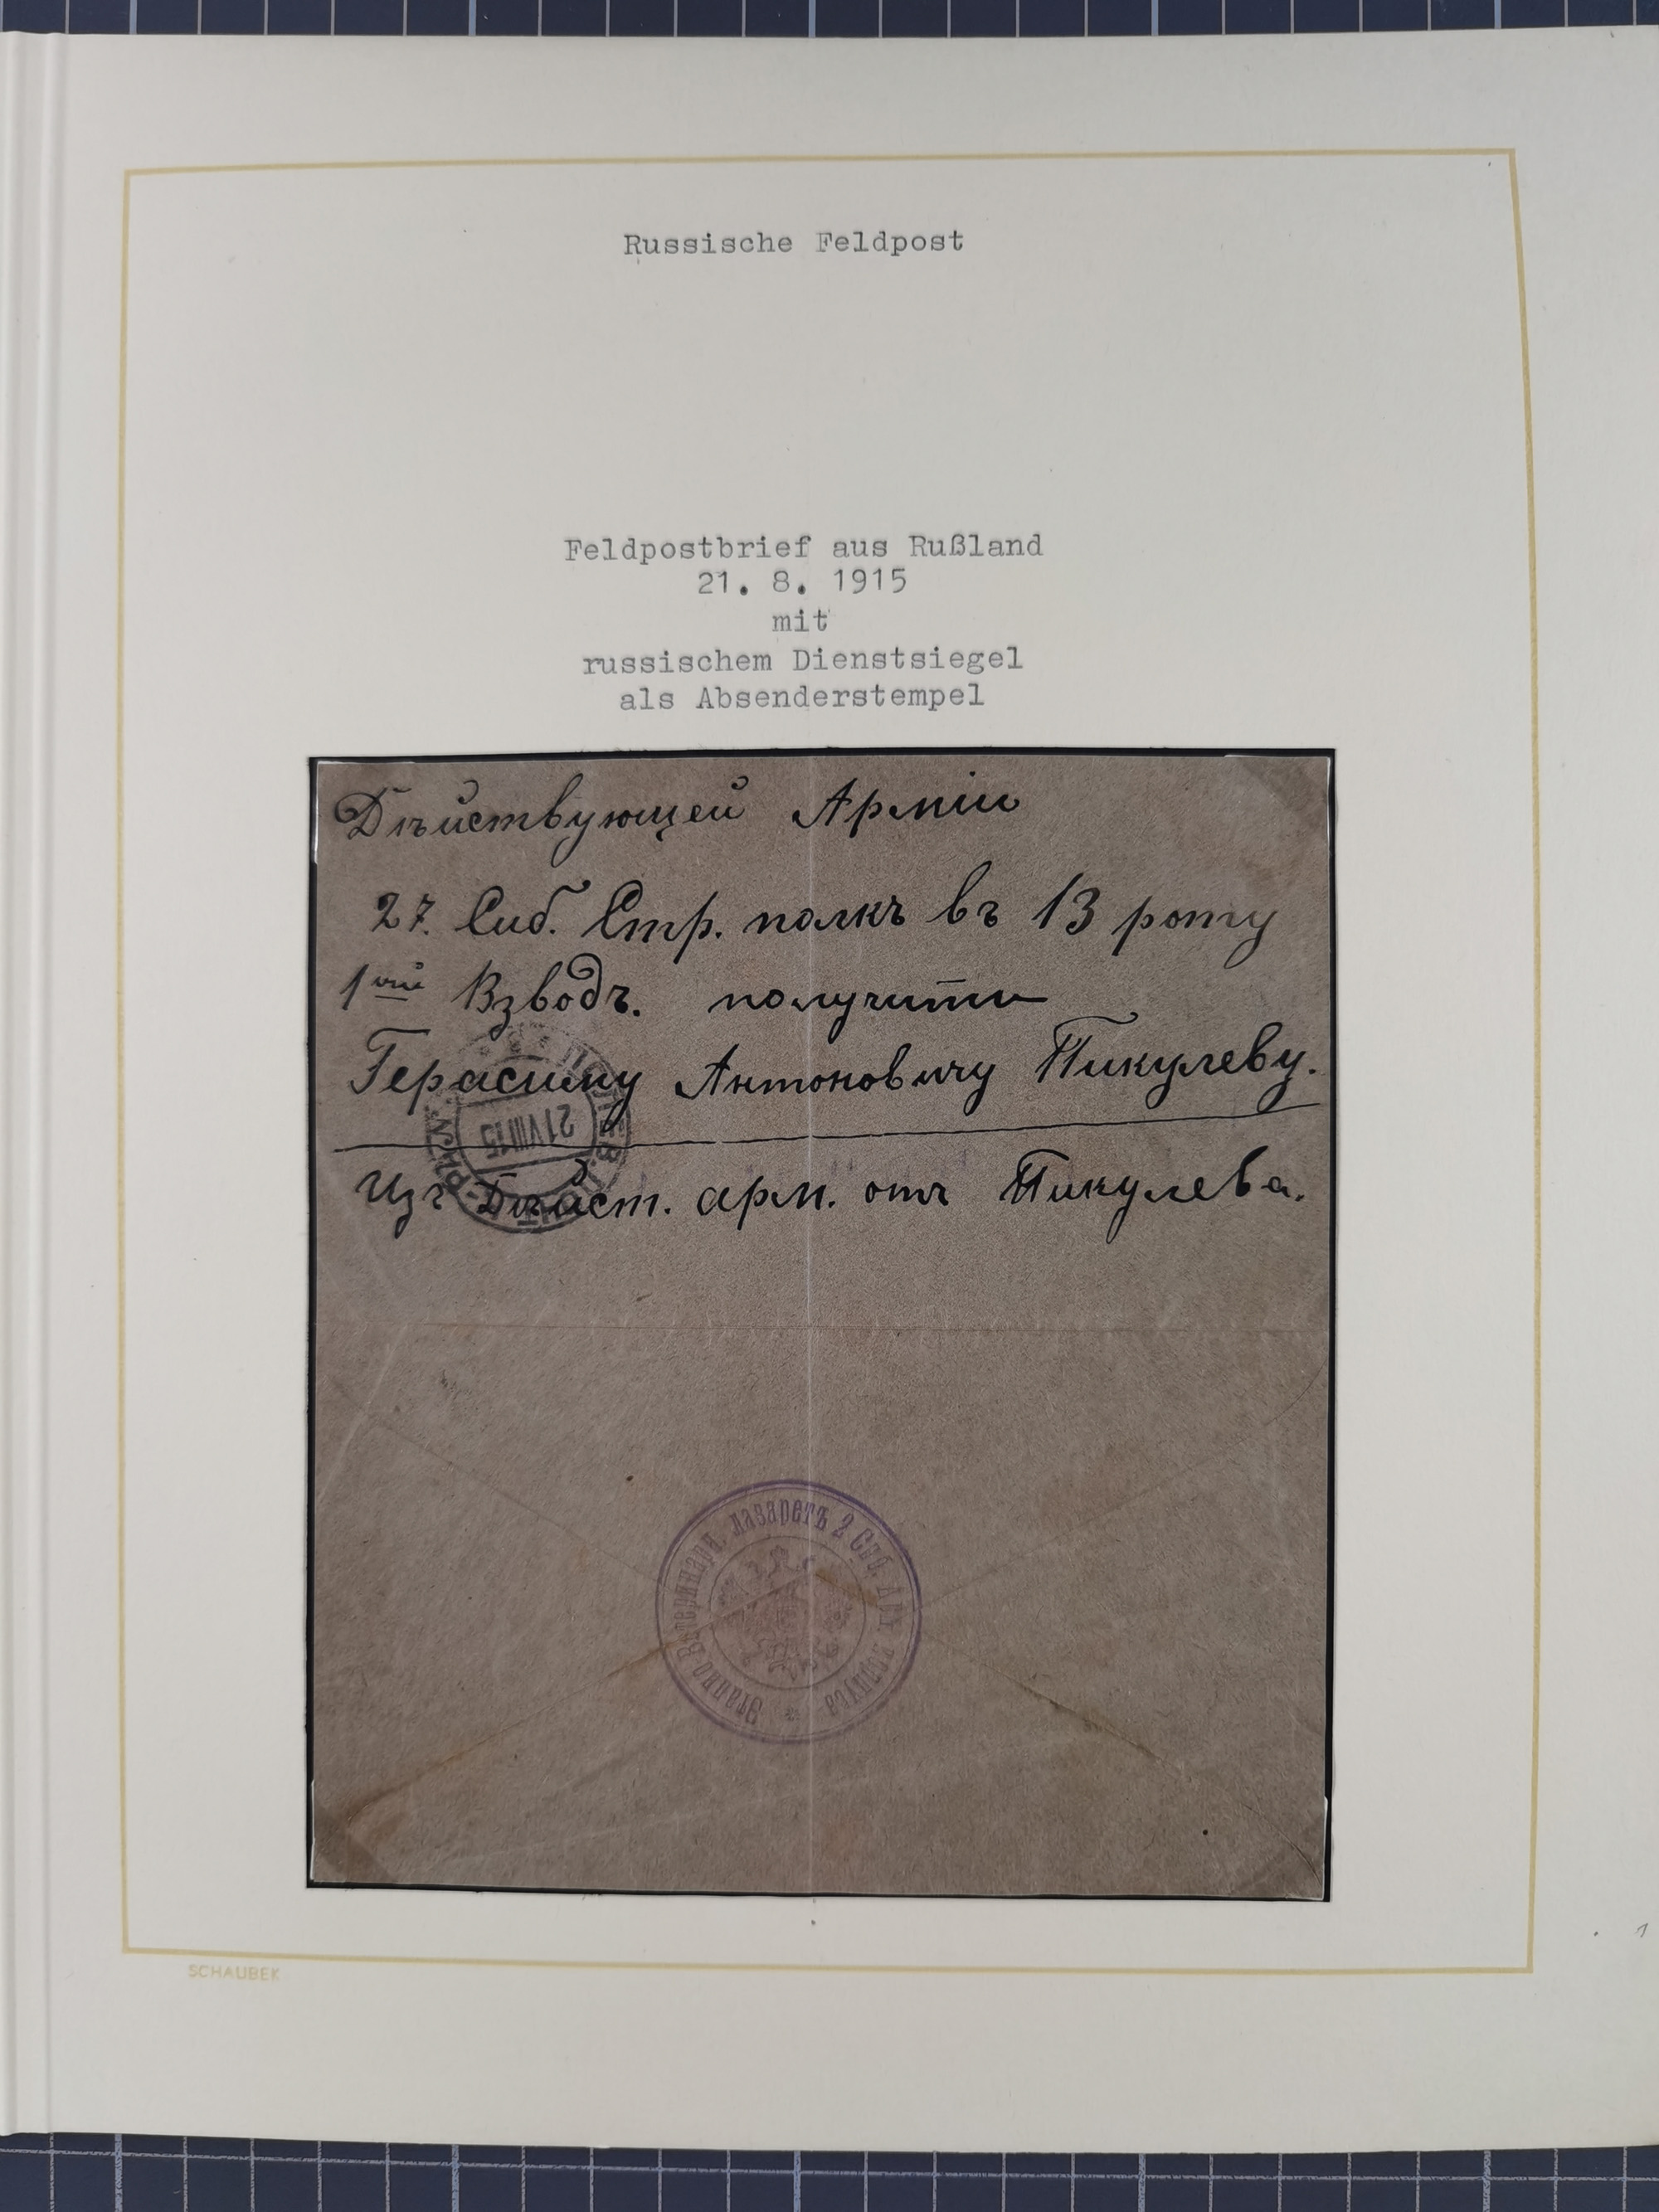 Russische Feldpost
Feldpostbrief aus Rußland
21. 8. 1915
mit
russischem Dienstsiegel
als Absenderstempel
Дѣйствующей Арміи
27. Сиб. Стр. полкъ въ 13 роту
1ый Взводъ. получити
Герасиму Антоновичу Пикулеву.
21 VIII 15
Изъ Дѣйст. арм. отъ Пикулева.
Этапно Ветеринарн. лазаретъ 2 Сиб. Арм. корпуса
SCHAUBEK